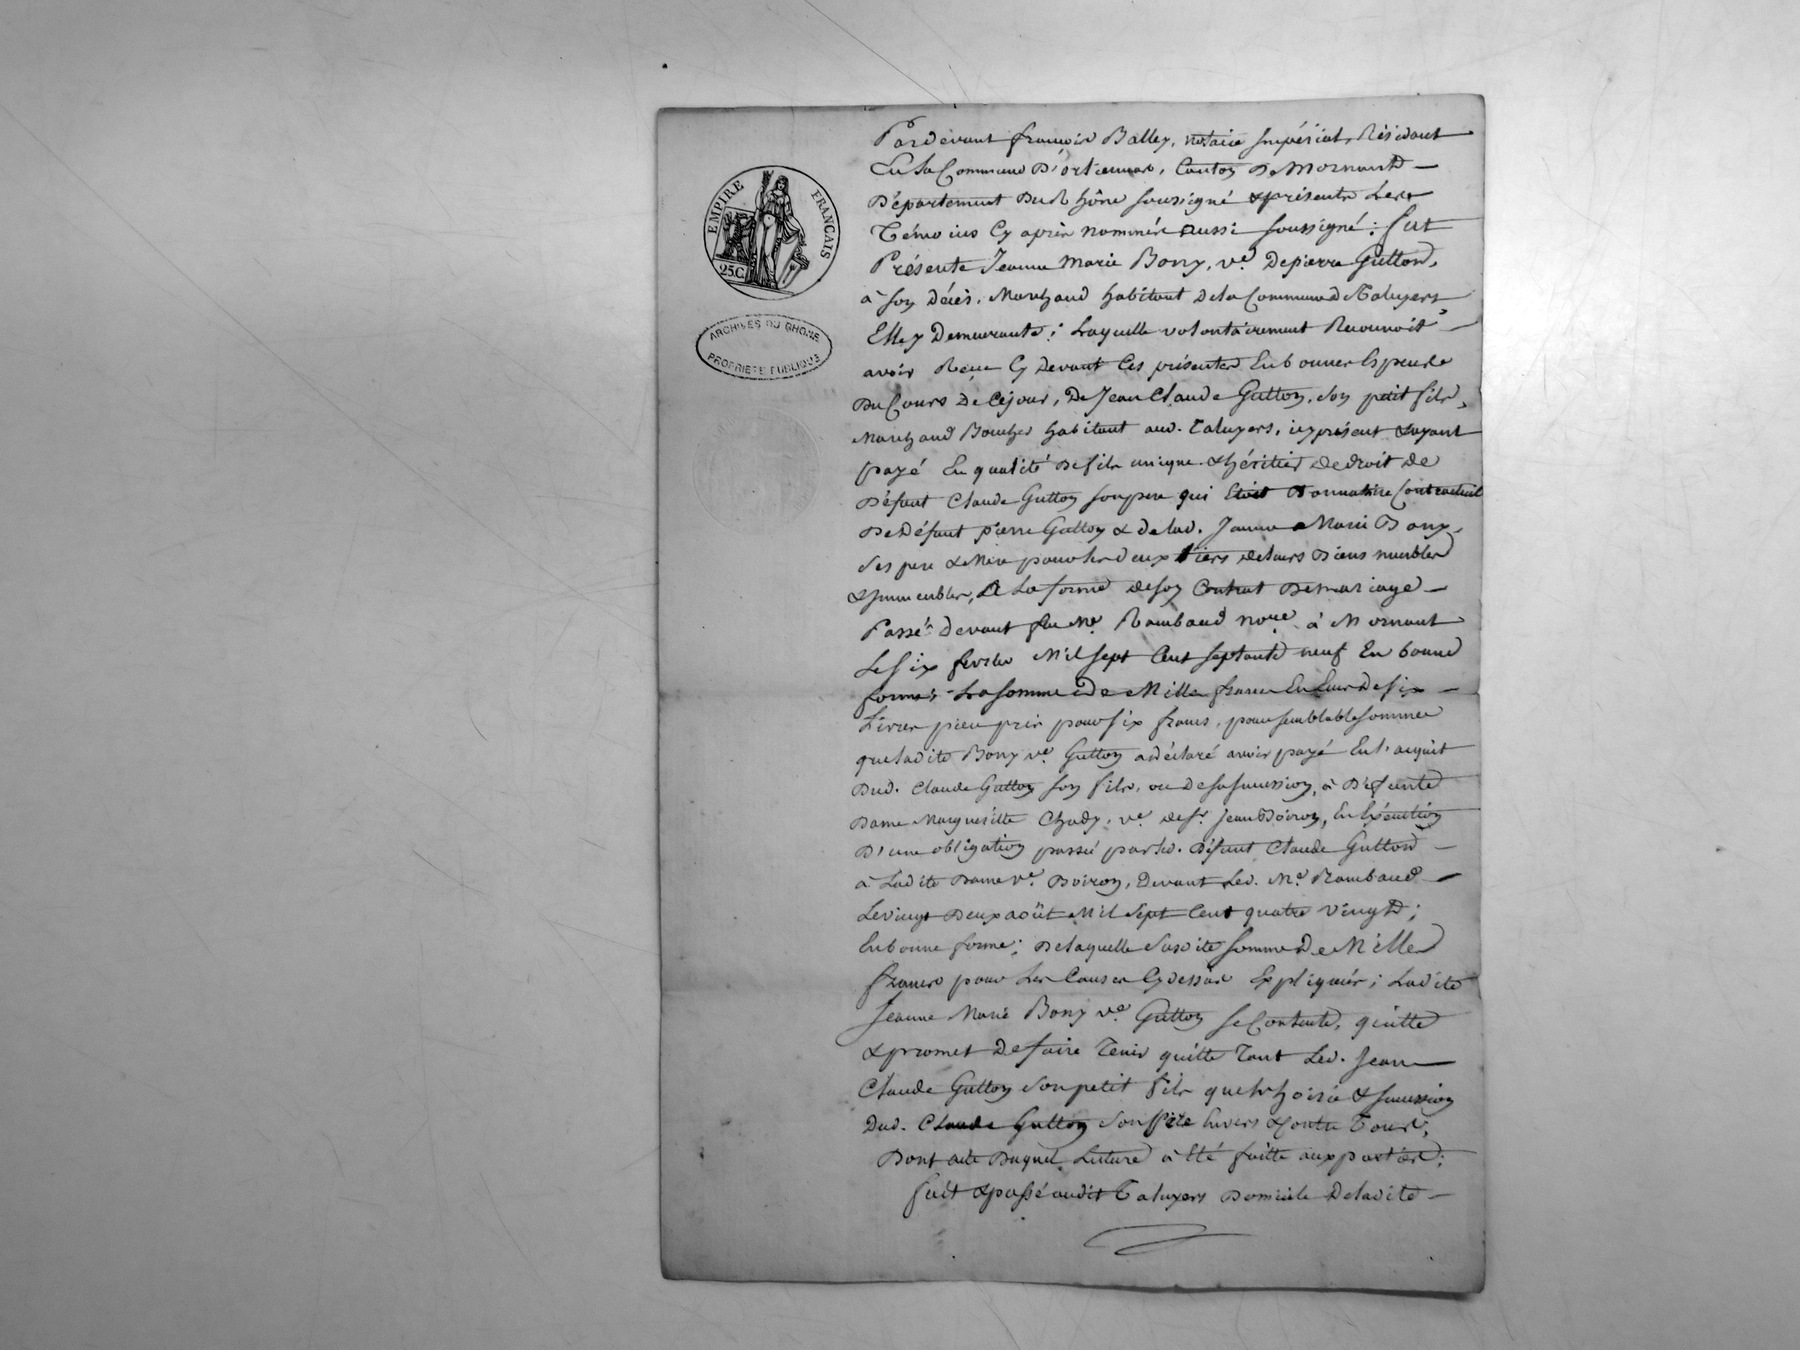 EMPIRE FRANÇAIS
25C
ARCHIVES DU RHONE
PROPRIETE PUBLIQUE
Pardevant françois Balley, notaire Impérial, Résidant
En la Commune D'orliennas, Canton De Mornant
Département Du Rhône soussigné & présents Les
Témoins Cy après nommés aussi soussigné : fut
Présente Jeanne Marie Bony, ve. De pierre Gutton,
à son décès, Marchand habitant De la Commune de Taluyers
Elle y Demeurante ; Laquelle volontairement Reconnoit
avoir Reçue Cy Devant Ces présentes En bonnes Espece
Du Cours De Cejour, De Jean Claude Gutton, son petit fils,
Marchand Boucher habitant aud. Taluyers, icy présent & ayant
payé En qualité De fils unique & héritier De droit De
Défunt Claude Gutton son pere qui Etoit Donnataire Contractuel
De Défunt pierre Gutton & de lad. Jeanne Marie Bony,
ses pere & Mere pour les deux tiers de leurs Biens meubles
& immeubles, A La forme de son Contrat De mariage
Passé Devant feu Me. Rambaud nore. à Mornant
Le Six fevrier Mil sept Cent septante neuf En bonne
forme, La somme De Mille francs En Ecus De six
Livres pieces pris pour six francs, pour semblable somme
que ladite Bony ve. Gutton a déclaré avoir payé En l'acquit
Dud. Claude Gutton son fils, ou De sa succession, à Défunte
Dame Margueritte Chady, ve. de sr. Jean Boiron, En Exécution
D'une obligation passée par led. Défunt Claude Gutton
à Ladite Dame ve. Boiron, Devant Led. Me. Rambaud
Le vingt Deux août Mil Sept Cent quatre vingt ;
En bonne forme ; De laquelle Susdite somme De Mille
francs pour Les Causes Cy dessus Expliquées ; Ladite
Jeanne Marie Bony ve. Gutton se Contente, quitte
& promet De faire Tenir quitte Tant Led. Jean
Claude Gutton son petit fils que les hoirie & succession
Dud. Claude Gutton son père Envers & Contre Tous,
Dont acte Duquel Lecture à Eté faitte aux parties ;
fait & passé audit Taluyers Domicile De ladite